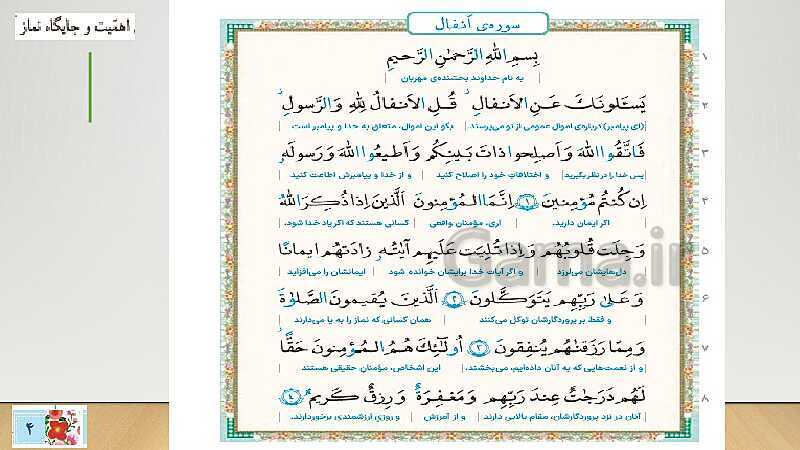 اهمّیت و جایگاه نماز
سوره‌ی اَنفال
بِسمِ اللهِ الرَّحمٰنِ الرَّحیمِ
۱
به نام خداوند بخشنده‌ی مهربان
یَسـَٔلونَکَ عَنِ الاَنفالِ ۖ قُلِ الاَنفالُ لِلّٰهِ وَ الرَّسولِ ۖ
۲
(ای پیامبر) درباره‌ی اموال عمومی از تو می‌پرسند | بگو این اموال، متعلق به خدا و پیامبر است
فَاتَّقُوا اللهَ وَ اَصلِحوا ذاتَ بَینِکُم وَ اَطیعُوا اللهَ وَ رَسولَهٗ
۳
پس خدا را در نظر بگیرید | و اختلافات خود را اصلاح کنید | و از خدا و پیامبرش اطاعت کنید
اِن کُنتُم مُؤمِنینَ ﴿۱﴾ اِنَّمَا المُؤمِنونَ الَّذینَ اِذا ذُکِرَ اللهُ
۴
اگر ایمان دارید. | آری، مؤمنان واقعی | کسانی هستند که اگر یاد خدا شود،
وَجِلَت قُلوبُهُم وَ اِذا تُلِیَت عَلَیهِم آیاتُهٗ زادَتهُم ایمانًا
۵
دل‌هایشان می‌لرزد | و اگر آیات خدا برایشان خوانده شود | ایمانشان را می‌افزاید
وَ عَلیٰ رَبِّهِم یَتَوَکَّلونَ ﴿۲﴾ اَلَّذینَ یُقیمونَ الصَّلاةَ
۶
و فقط بر پروردگارشان توکل می‌کنند | همان کسانی که نماز را به پا می‌دارند
وَ مِمّا رَزَقناهُم یُنفِقونَ ﴿۳﴾ اُولٰئِکَ هُمُ المُؤمِنونَ حَقًّا ۚ
۷
و از نعمت‌هایی که به آنان داده‌ایم، می‌بخشند. | این اشخاص، مؤمنان حقیقی هستند
لَهُم دَرَجاتٌ عِندَ رَبِّهِم وَ مَغفِرَةٌ وَ رِزقٌ کَریمٌ ﴿۴﴾
۸
آنان در نزد پروردگارشان، مقام بالایی دارند | و از آمرزش | و روزی ارزشمندی برخوردارند.
Gama.ir
۴